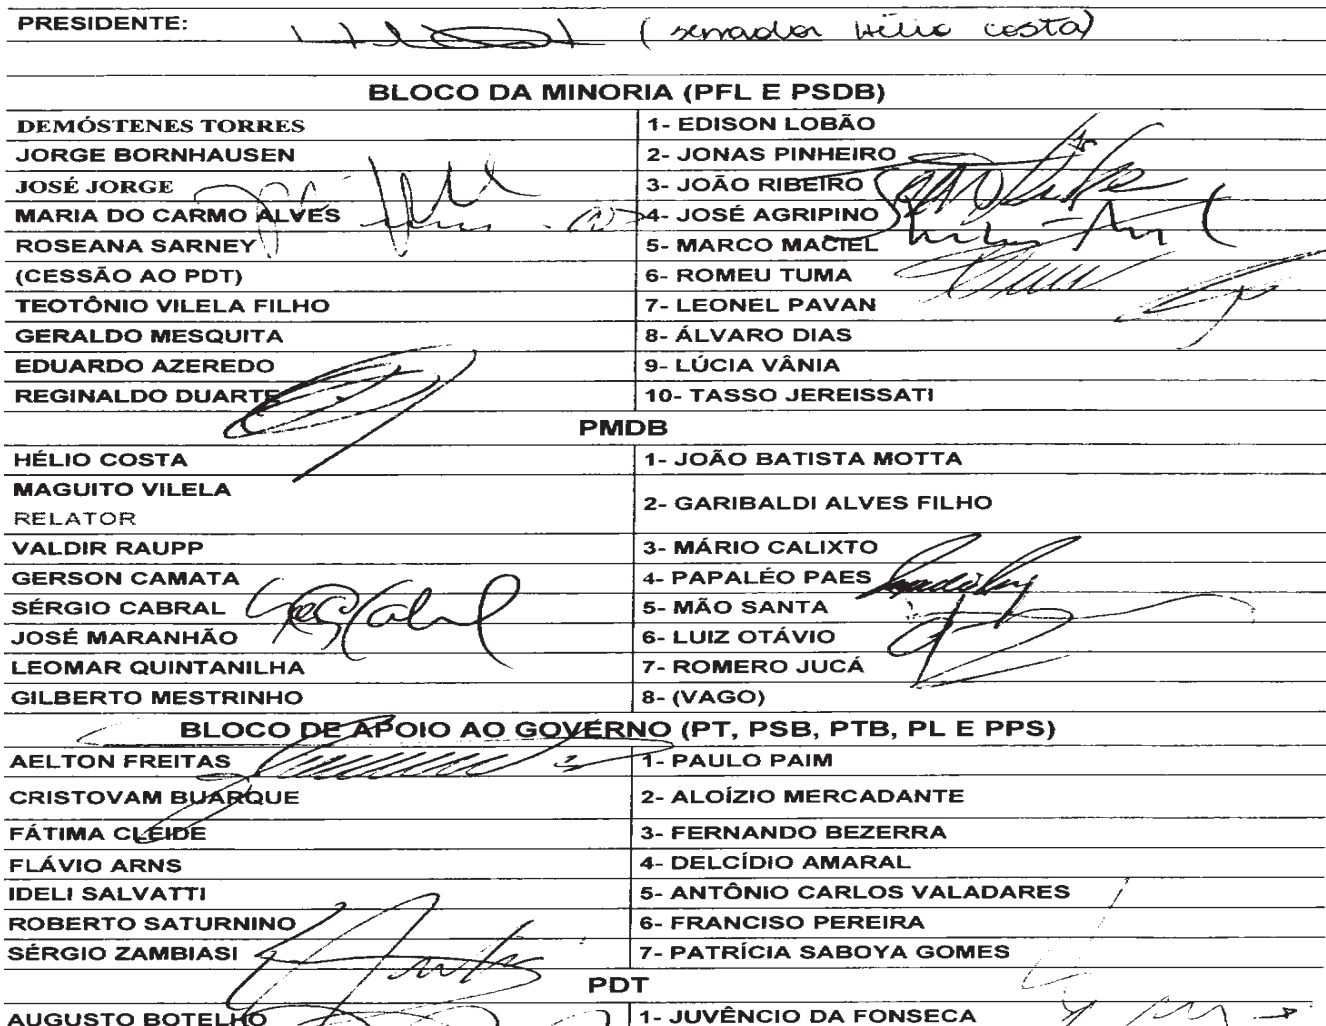 PRESIDENTE: (senador Hélio Costa)
BLOCO DA MINORIA (PFL E PSDB)
DEMÓSTENES TORRES 1- EDISON LOBÃO
JORGE BORNHAUSEN 2- JONAS PINHEIRO
JOSÉ JORGE 3- JOÃO RIBEIRO
MARIA DO CARMO ALVES 4- JOSÉ AGRIPINO
ROSEANA SARNEY 5- MARCO MACIEL
(CESSÃO AO PDT) 6- ROMEU TUMA
TEOTÔNIO VILELA FILHO 7- LEONEL PAVAN
GERALDO MESQUITA 8- ÁLVARO DIAS
EDUARDO AZEREDO 9- LÚCIA VÂNIA
REGINALDO DUARTE 10- TASSO JEREISSATI
PMDB
HÉLIO COSTA 1- JOÃO BATISTA MOTTA
MAGUITO VILELA
RELATOR 2- GARIBALDI ALVES FILHO
VALDIR RAUPP 3- MÁRIO CALIXTO
GERSON CAMATA 4- PAPALÉO PAES
SÉRGIO CABRAL 5- MÃO SANTA
JOSÉ MARANHÃO 6- LUIZ OTÁVIO
LEOMAR QUINTANILHA 7- ROMERO JUCÁ
GILBERTO MESTRINHO 8- (VAGO)
BLOCO DE APOIO AO GOVERNO (PT, PSB, PTB, PL E PPS)
AELTON FREITAS 1- PAULO PAIM
CRISTOVAM BUARQUE 2- ALOÍZIO MERCADANTE
FÁTIMA CLEIDE 3- FERNANDO BEZERRA
FLÁVIO ARNS 4- DELCÍDIO AMARAL
IDELI SALVATTI 5- ANTÔNIO CARLOS VALADARES
ROBERTO SATURNINO 6- FRANCISO PEREIRA
SÉRGIO ZAMBIASI 7- PATRÍCIA SABOYA GOMES
PDT
AUGUSTO BOTELHO 1- JUVÊNCIO DA FONSECA